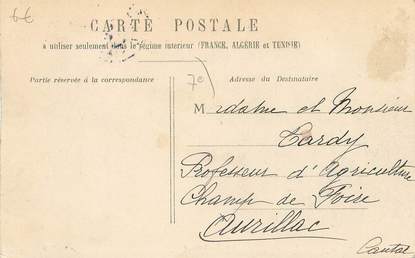 6€
CARTE POSTALE
à utiliser seulement dans le régime intérieur (FRANCE, ALGÉRIE et TUNISIE)
Partie réservée à la correspondance
7e
Adresse du Destinataire
Madame et Monsieur
Tardy
Professeur d'Agriculture
Champ de Foire
Aurillac
Cantal